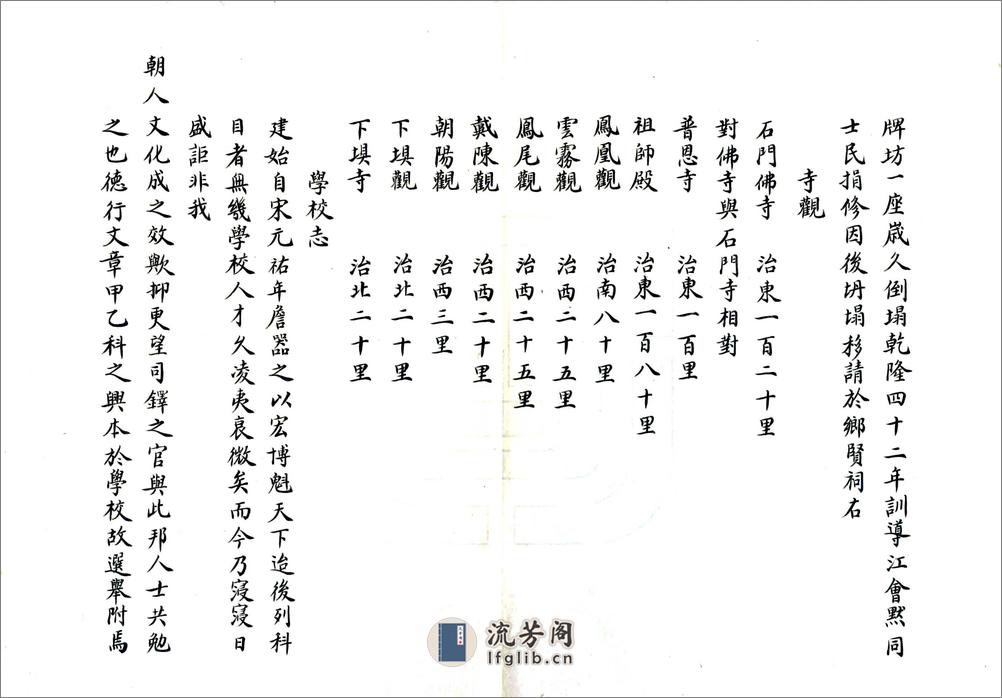 牌坊一座嵗久倒塌乾隆四十二年訓導江會黙同
士民捐修因後坍塌移請於鄉賢祠右
寺觀
石門佛寺 治東一百二十里
對佛寺與石門寺相對
普恩寺 治東一百里
祖師殿 治東一百八十里
鳳凰觀 治南八十里
雲霧觀 治西二十五里
鳳尾觀 治西二十五里
戴陳觀 治西二十里
朝陽觀 治西三里
下垻觀 治北二十里
下垻寺 治北二十里
學校志
建始自宋元祐年詹器之以宏博魁天下迨後列科
目者無幾學校人才久凌夷衰微矣而今乃寖寖日
盛詎非我
朝人文化成之效歟抑更望司鐸之官與此邦人士共勉
之也德行文章甲乙科之興本於學校故選舉附焉
流芳阁
lfglib.cn